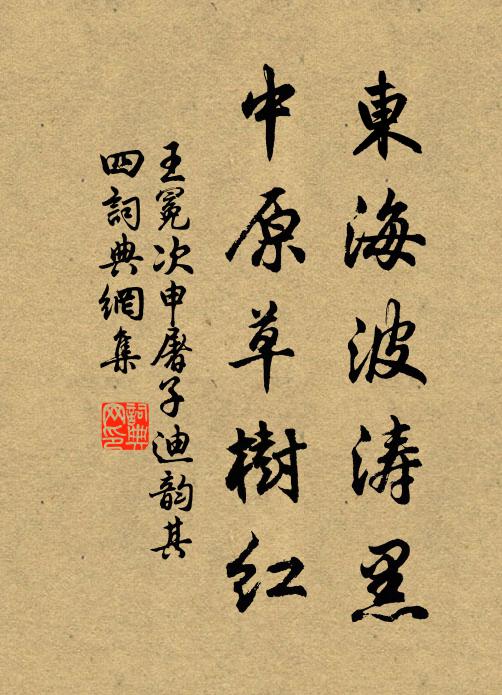 東海波涛黑
中原草樹红
王冕次申屠子迪韵其
四詞典網集
詞典网印